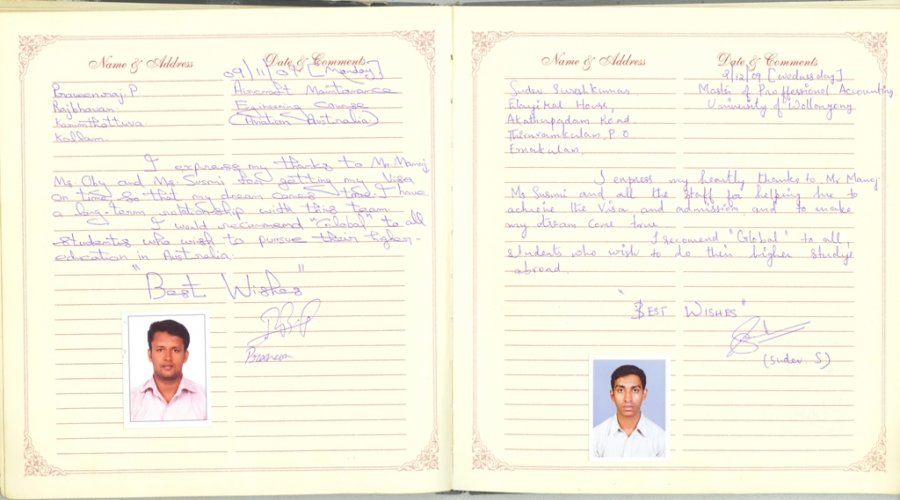 Name & Address
Date & Comments
09/11/09 [Monday]
Praveenraj.P
Aircraft Maintanance
Rajbhavan
Engineering Course
Karimthottuva
(Aviation Australia)
Kollam
I express my thanks to Mr. Manoj,
Ms. Oby and Ms. Susmi for getting my Visa
on time, so that my dream comes true. I have
a long-term relationship with this team.
I would recommend "Global" to all
students who wish to pursue their higher-
education in Australia.
"Best Wishes"
Name & Address
Date & Comments
2/12/09 [Wednesday]
Sudev Sureshkumar
Master of Proffessional Accounting
House,
University of Wollongong
Road
P.O
Ernakulam.
I express my heartly thanks to Mr Manoj
Ms Susmi and all the staff for helping me to
achieve the Visa and admission and to make
my dream come true.
I recomend "Global" to all,
students who wish to do their higher studys
abroad.
"BEST WISHES"
(Sudev S)